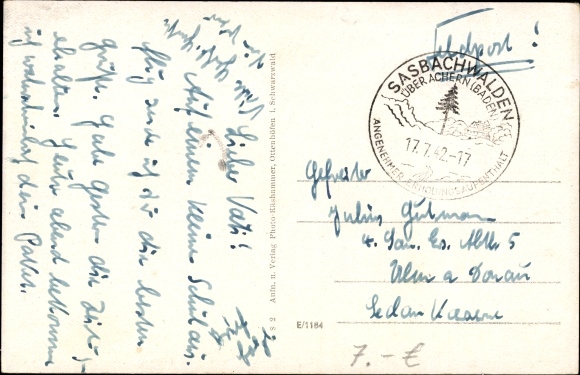 Lieber Vati!
Auf einem kleinen Schulaus-
flug sende ich dir die besten
Grüße. Habe gestern die Zeitung
erhalten. Heute abend bekomme
ich wahrscheinlich dein Paket.
S 2 Aufn. u. Verlag Photo-Käshammer, Ottenhöfen i. Schwarzwald
E/1184
Feldpost!
SASBACHWALDEN
ÜBER ACHERN (BADEN)
17.7.42.-17
ANGENEHMER ERHOLUNGSAUFENTHALT
Gefreiter
Julius Gutmann
4. San. Ers. Abtlg. 5
Ulm a Donau
Sedan Kaserne
7.- €